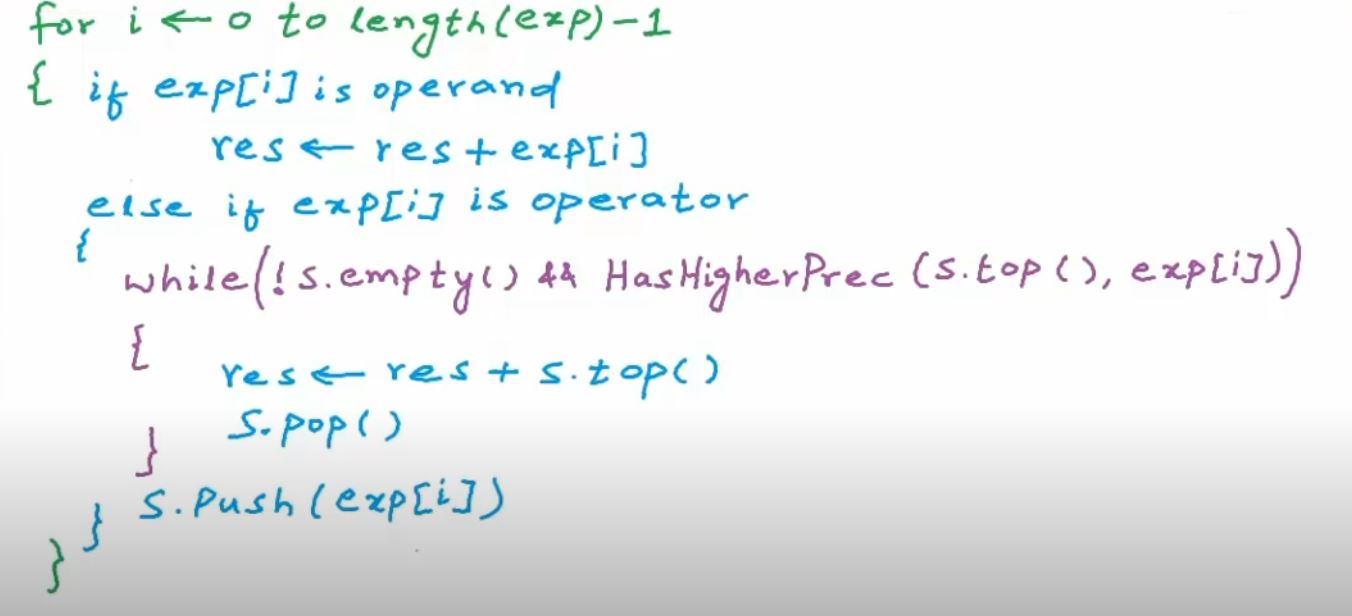 for i ← 0 to length(exp)-1
{ if exp[i] is operand
res ← res + exp[i]
else if exp[i] is operator
{
while(!s.empty() && HasHigherPrec(s.top(), exp[i]))
{
res ← res + s.top()
s.pop()
}
s.push(exp[i])
}
}